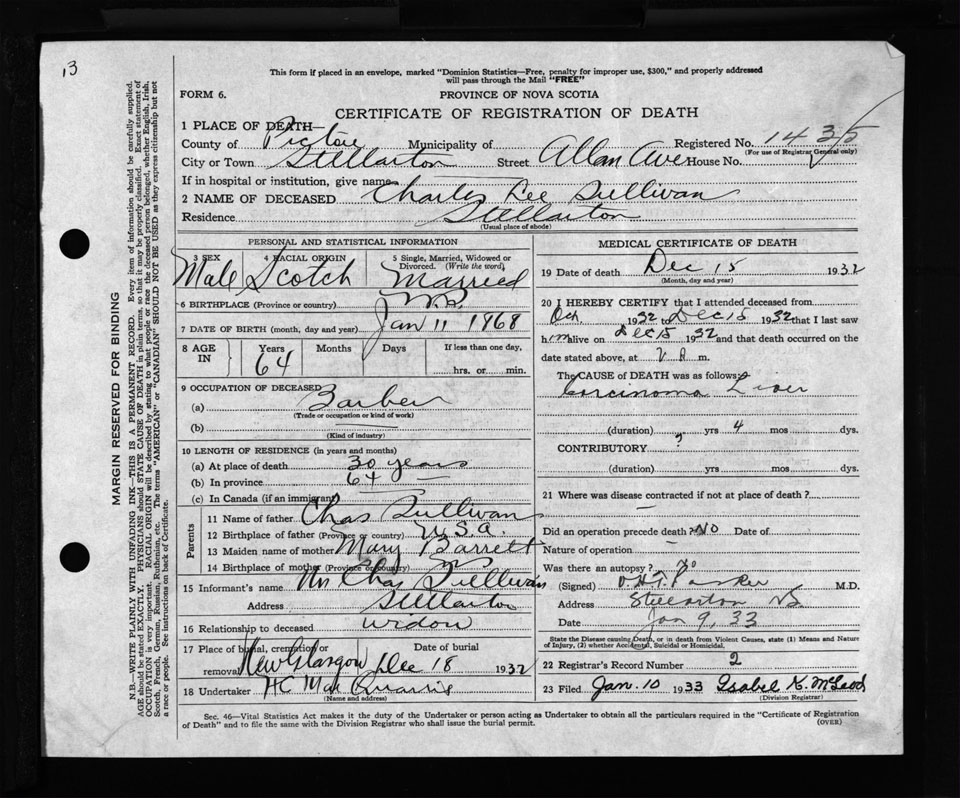 13
This form if placed in an envelope, marked "Dominion Statistics—Free, penalty for improper use, $300," and properly addressed
will pass through the Mail "FREE"
FORM 6.
PROVINCE OF NOVA SCOTIA
CERTIFICATE OF REGISTRATION OF DEATH
1 PLACE OF DEATH—
County of Pictou Municipality of Registered No. 1435
(For use of Registrar General only)
City or Town Stellarton Street Allan Ave House No.
If in hospital or institution, give name
2 NAME OF DECEASED Charles Lee Sullivan
Residence Stellarton
(Usual place of abode)
PERSONAL AND STATISTICAL INFORMATION
3 SEX 4 RACIAL ORIGIN 5 Single, Married, Widowed or
Divorced. (Write the word)
Male Scotch Married
6 BIRTHPLACE (Province or country) N.S.
7 DATE OF BIRTH (month, day and year) Jan 11 1868
8 AGE IN Years Months Days If less than one day,
64 hrs. or min.
9 OCCUPATION OF DECEASED
(a) Barber
(Trade or occupation or kind of work)
(b)
(Kind of industry)
10 LENGTH OF RESIDENCE (in years and months)
(a) At place of death 30 years
(b) In province 64 —
(c) In Canada (if an immigrant)
Parents
11 Name of father Chas Sullivan
12 Birthplace of father (Province or country) U.S.A.
13 Maiden name of mother Mary Barrett
14 Birthplace of mother (Province or country) N S
15 Informant's name Mrs Chas Sullivan
Address Stellarton
16 Relationship to deceased widow
17 Place of burial, cremation or Date of burial
removal New Glasgow Dec 18 1932
18 Undertaker H C Mac Quarrie
(Name and address)
MEDICAL CERTIFICATE OF DEATH
19 Date of death Dec 15 1932
(Month, day and year)
20 I HEREBY CERTIFY that I attended deceased from
Oct 1932 to Dec 15 1932 that I last saw
him alive on Dec 15 1932 and that death occurred on the
date stated above, at m.
The CAUSE of DEATH was as follows:
Carcinoma Liver
(duration) yrs 4 mos dys.
CONTRIBUTORY
(duration) yrs mos dys.
21 Where was disease contracted if not at place of death?
—
Did an operation precede death? No Date of
Nature of operation —
Was there an autopsy? No
(Signed) Parker M.D.
Address Stellarton NS
Date Jan 9, 33
State the Disease causing Death, or in death from Violent Causes, state (1) Means and Nature
of Injury, (2) whether Accidental, Suicidal or Homicidal.
22 Registrar's Record Number 2
23 Filed Jan. 10 1933 Isabel K. McLeod
(Division Registrar)
Sec. 46—Vital Statistics Act makes it the duty of the Undertaker or person acting as Undertaker to obtain all the particulars required in the "Certificate of Registration
of Death" and to file the same with the Division Registrar who shall issue the burial permit.
(OVER)
MARGIN RESERVED FOR BINDING
N.B.—WRITE PLAINLY WITH UNFADING INK—THIS IS A PERMANENT RECORD. Every item of information should be carefully supplied.
AGE should be stated EXACTLY. PHYSICIANS should STATE CAUSE OF DEATH in plain terms, so that it may be properly classified. Exact statement of
OCCUPATION is very important. RACIAL ORIGIN will be described by stating to what people or race the deceased person belonged, whether English, Irish,
Scotch, French, German, Russian, Ruthenian, etc. The terms "AMERICAN" or "CANADIAN" SHOULD NOT BE USED as they express citizenship but not
a race or people. See instructions on back of Certificate.